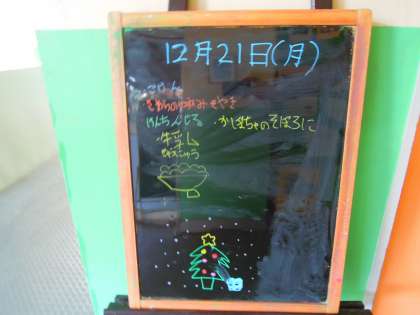 12月21日(月)
ごはん
さわらのゆずみそやき
けんちんじる かぼちゃのそぼろに
牛乳